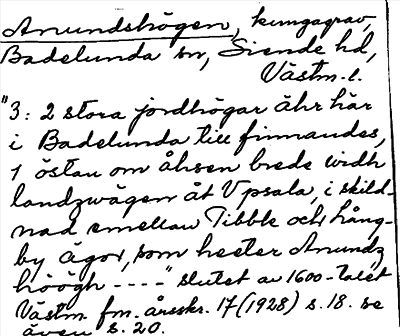 Anundshögen, kungagrav,
Badelunda sn, Siende hd,
Västm. l.
"3: 2 stora jordhögar ähr här
i Badelunda till finnandes,
1 östan om åhsen brede widh
landzwägen åt Upsala, i skild-
nad emellan Tibble och hång-
by ägor, som heeter Anundz
höögh ----" slutet av 1600-talet
Västm. fm. årsskr. 17 (1928) s. 18. se
även s. 20.